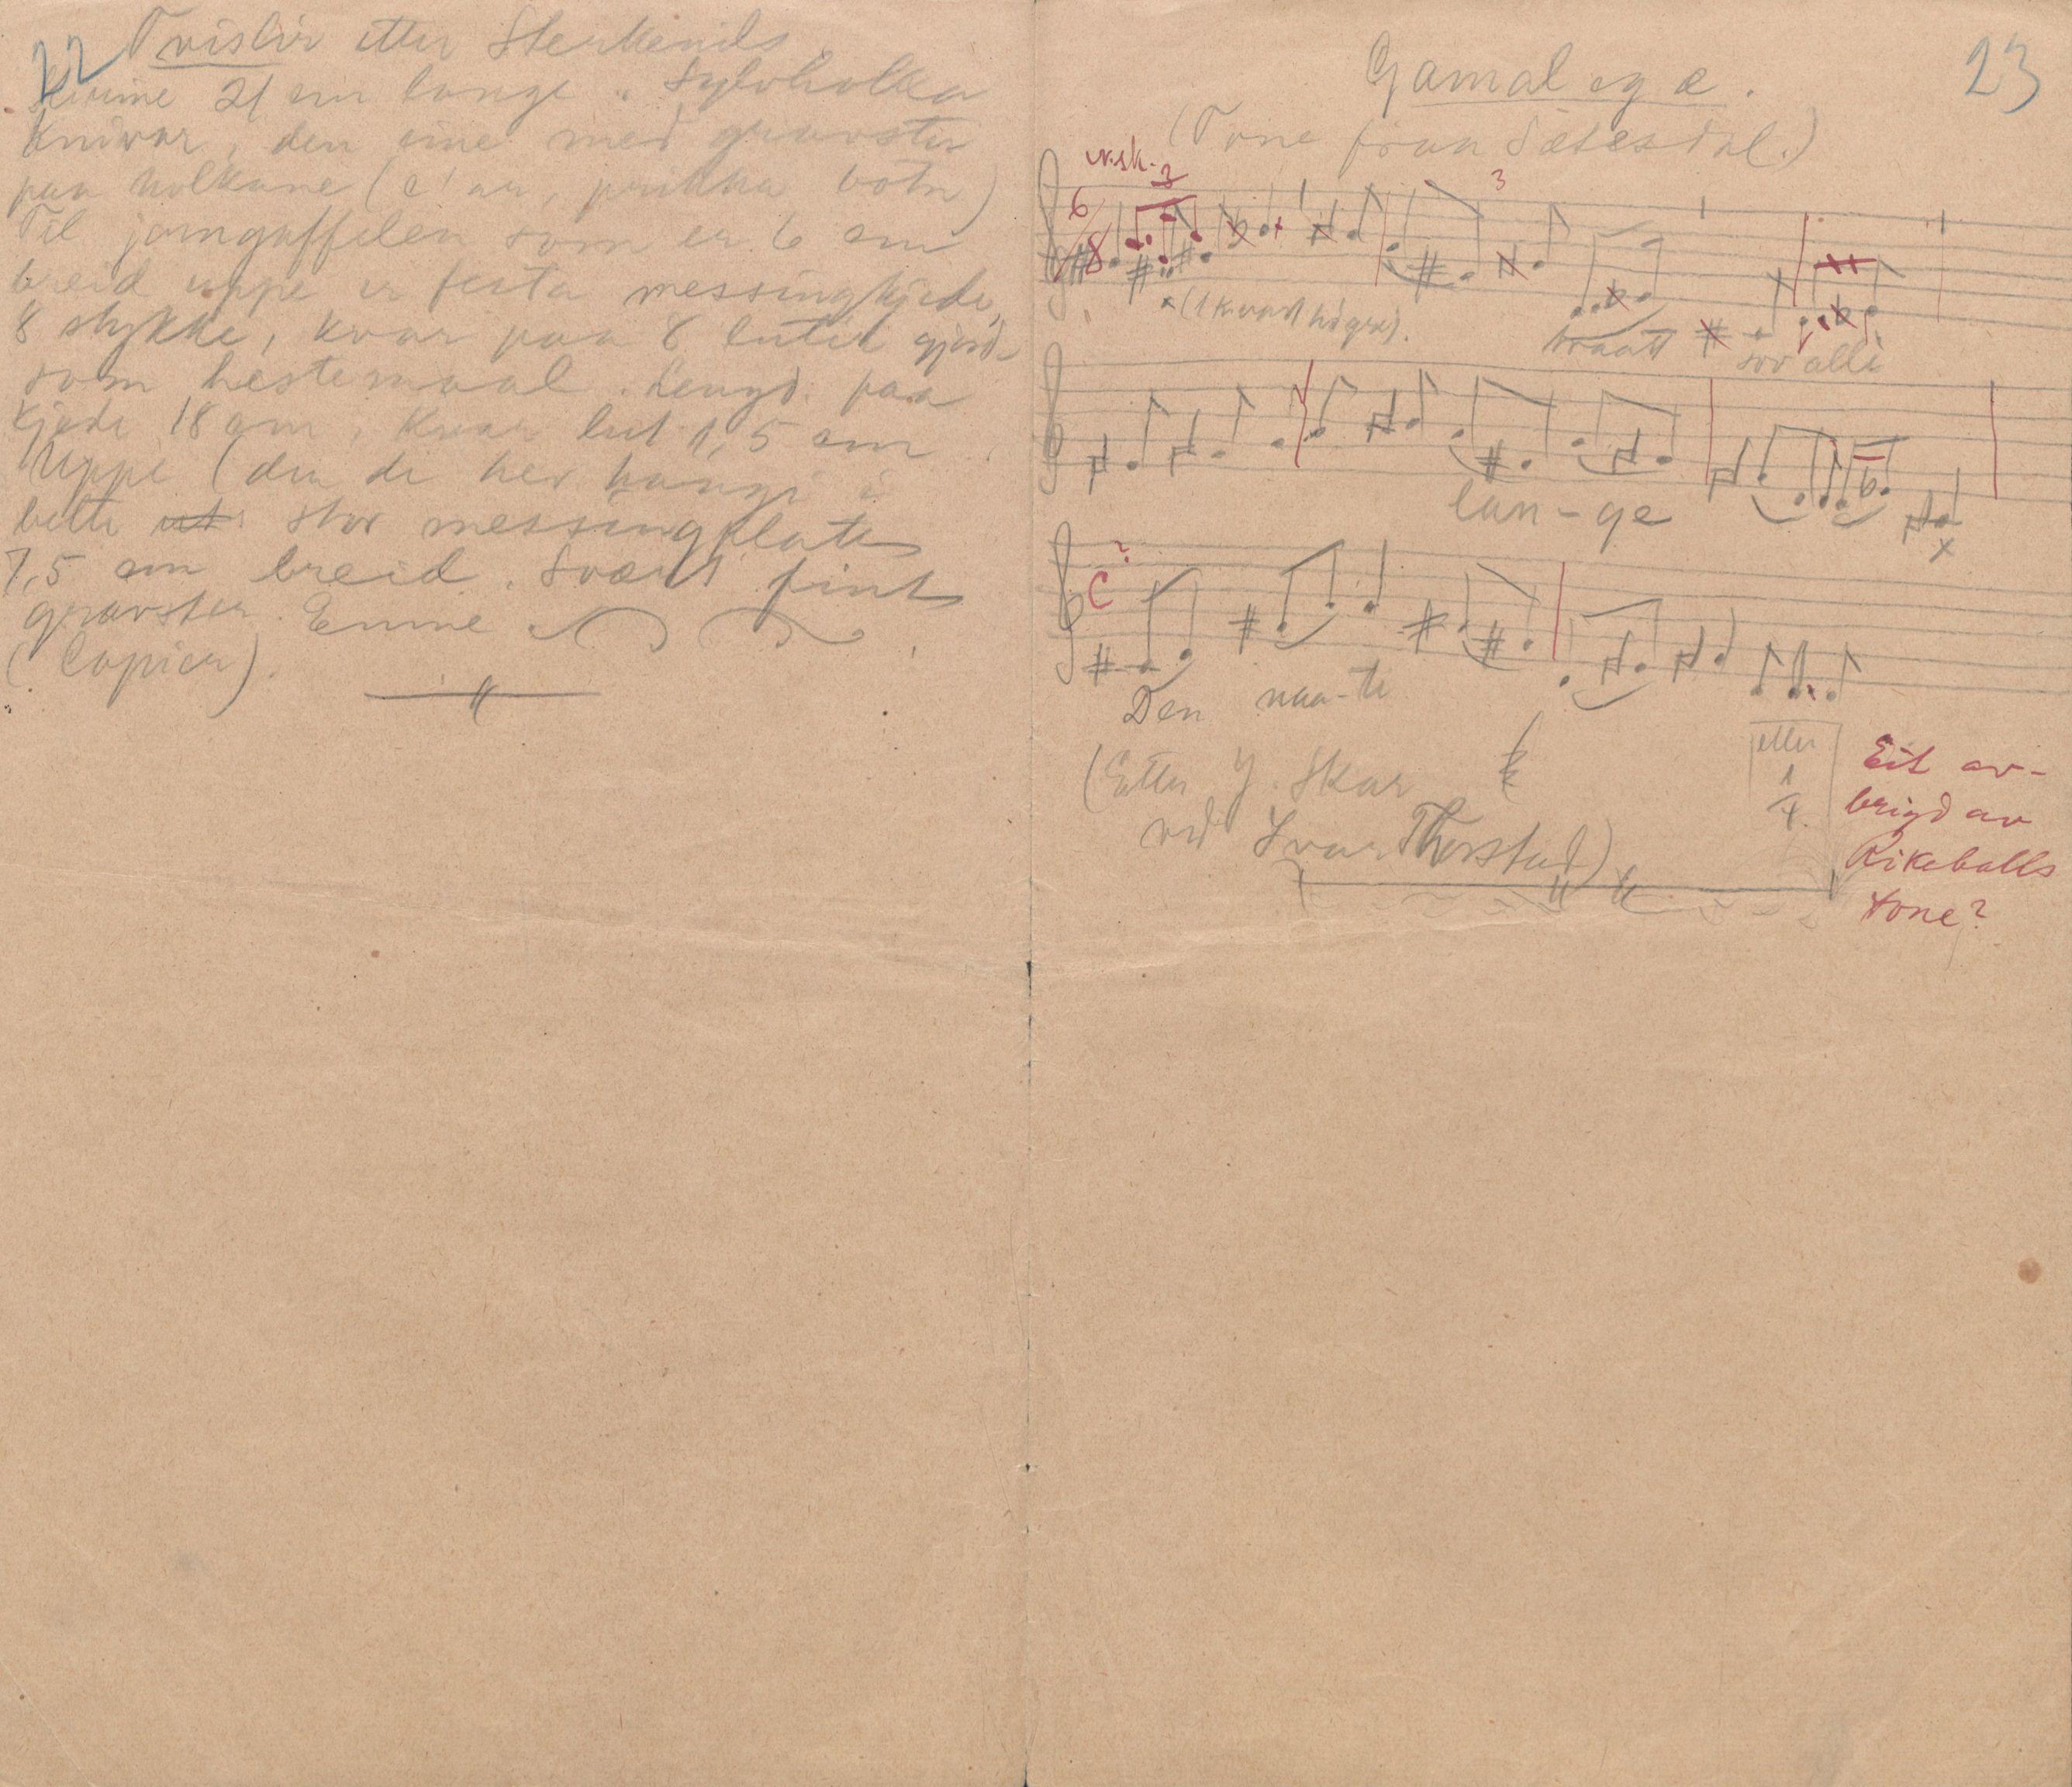 22
Tvislir etter Sterkenils
21 cm lange. Sylvholka
knivar, den eine med gravster
paa holkane (c'ar, prikka botn)
Til jarngaffelen som er 6 cm
breid uppe er festa messingkjede,
8 stykke, kvar paa 8 lutir gjord
som hestemaal. Lengd. paa
kjede 18 cm, kvar lut 1,5 cm
Uppe (den de her hange i
belte stor messingplate
7,5 cm breid. Svært fint
gravster. Emne
(Copier).
23
Gamal eg æ.
(Tone fraa Sætesdal.)
6/8
3
3
x (1 kvart høgre).
braatt
sov alle
lan-ge
x
C ?
Den naa-te
eller
1
4.
(Etter J. Skar
ved Ivar Thorstad)
Eit av-
brigd av
Rikeballs
tone?